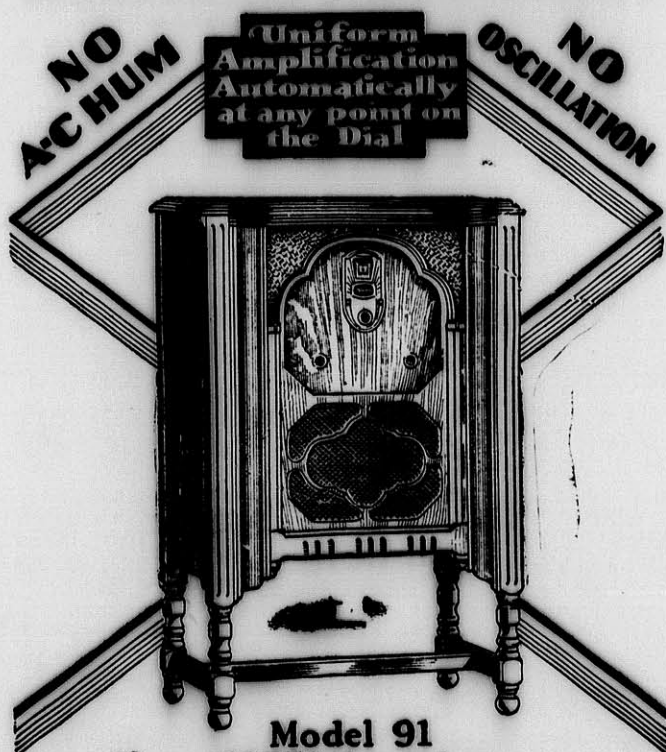 NO
A-C HUM
Uniform
Amplification
Automatically
at any point on
the Dial
NO
OSCILLATION
Model 91